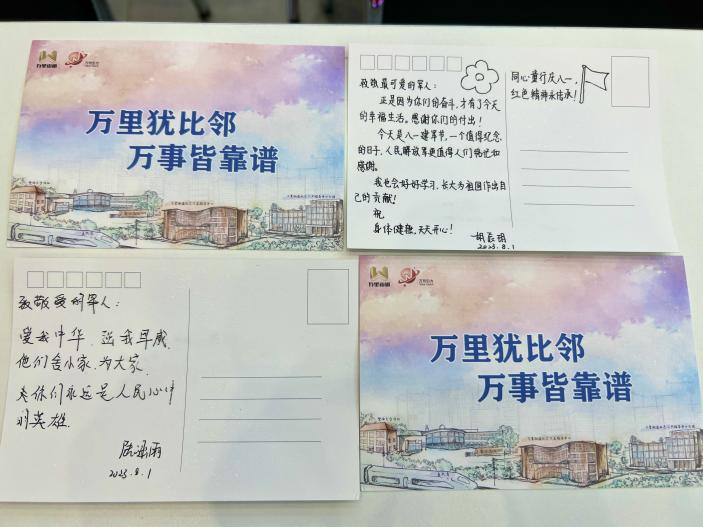 万里街道
万里犹比邻
万事皆靠谱
致敬最可爱的军人：
正是因为你们的奋斗，才有了今天
的幸福生活。感谢你们的付出！
今天是八一建军节，一个值得纪念
的日子，人民解放军更值得人们铭记和
感谢。
我也会好好学习，长大为祖国作出自
己的贡献！
祝
身体健康，天天开心！
2025.8.1
同心童行庆八一，
红色精神永传承！
致敬爱的军人：
爱我中华，强我军威，
他们舍小家，为大家，
你们永远是人民心中
的英雄.
2025.8.1
万里街道
万里犹比邻
万事皆靠谱